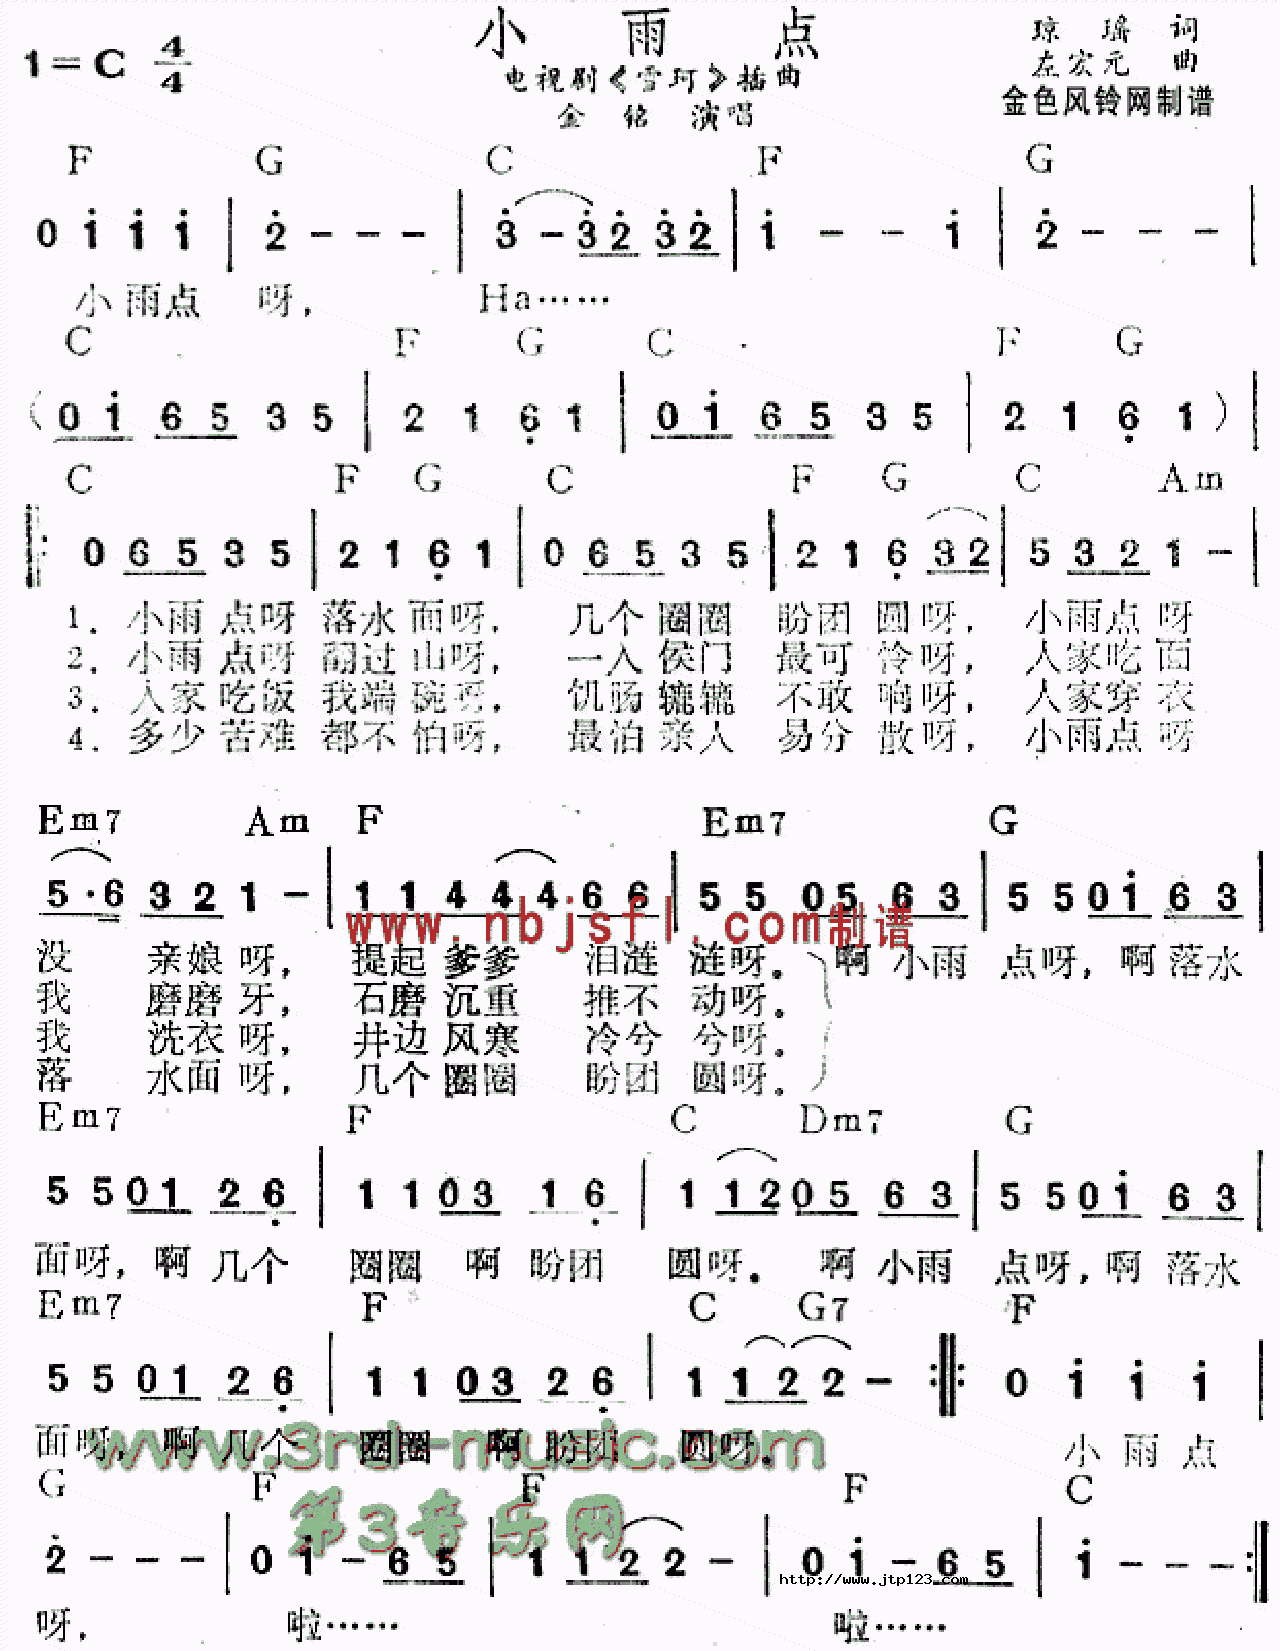 小雨点
1=C 4/4
电视剧《雪珂》插曲
金铭 演唱
琼瑶 词
左宏元 曲
金色风铃网制谱
F G C F G
0 1 1 1 | 2 - - - | 3 - 3 2 3 2 | 1 - - 1 | 2 - - - |
小雨点 呀, Ha……
C F G C F G
(0 1 6 5 3 5 | 2 1 6 1 | 0 1 6 5 3 5 | 2 1 6 1 )|
C F G C F G C Am
|: 0 6 5 3 5 | 2 1 6 1 | 0 6 5 3 5 | 2 1 6 3 2 | 5 3 2 1 - |
1. 小雨 点呀 落水 面呀, 几个 圈圈 盼团 圆呀, 小雨点 呀
2. 小雨 点呀 翻过 山呀, 一入 侯门 最可 怜呀, 人家吃 面
3. 人家 吃饭 我端 碗呀, 饥肠 辘辘 不敢 响呀, 人家穿 衣
4. 多少 苦难 都不 怕呀, 最怕 亲人 易分 散呀, 小雨点 呀
Em7 Am F Em7 G
5·6 3 2 1 - | 1 1 4 4 4 6 6 | 5 5 0 5 6 3 | 5 5 0 1 6 3 |
www.nbjsfl.com制谱
没 亲娘 呀, 提起 爹爹 泪涟 涟呀。 啊 小雨 点呀, 啊 落水
我 磨磨 牙, 石磨 沉重 推不 动呀。
我 洗衣 呀, 井边 风寒 冷兮 兮呀。
落 水面 呀, 几个 圈圈 盼团 圆呀。
Em7 F C Dm7 G
5 5 0 1 2 6 | 1 1 0 3 1 6 | 1 1 2 0 5 6 3 | 5 5 0 1 6 3 |
面呀, 啊 几个 圈圈 啊 盼团 圆呀。 啊 小雨 点呀, 啊 落水
Em7 F C G7 F
5 5 0 1 2 6 | 1 1 0 3 2 6 | 1 1 2 2 - :||: 0 1 1 1 |
面呀, 啊 几个 圈圈 啊 盼团 圆呀。 小雨点
www.3rd-music.com
G F F F C
第3音乐网
2 - - - | 0 1 - 6 5 | 1 1 2 2 - | 0 1 - 6 5 | 1 - - - :||
http://www.jtp123.com
呀, 啦…… 啦……